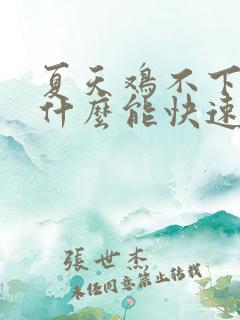 夏天鸡不下
什麽能快速
張世杰
未经同意禁止转载